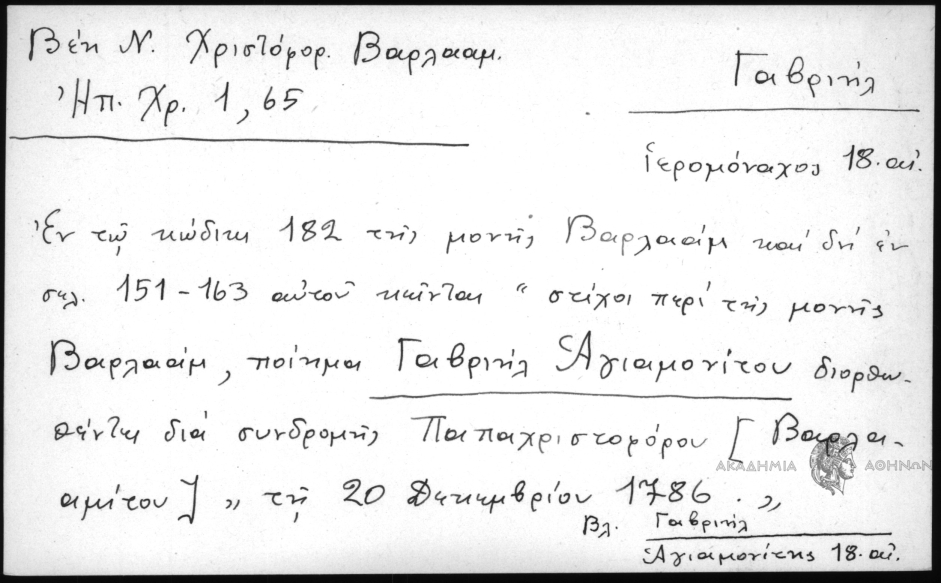 Βέη Ν. Χριστόφορ. Βαρλααμ.
Ἠπ. Χρ. 1, 65
Γαβριήλ
ἱερομόναχος 18. αἰ.
Ἐν τῷ κώδικι 182 τῆς μονῆς Βαρλαάμ καί δή ἐν
σελ. 151-163 αὐτοῦ κεῖνται "στίχοι περί τῆς μονῆς
Βαρλαάμ, ποίημα Γαβριήλ Ἁγιαμονίτου διορθω-
θέντες διά συνδρομῆς Παπαχριστοφόρου [Βαρλα-
αμίτου] „ τῇ 20 Δεκεμβρίου 1786. „
Βλ. Γαβριήλ
Ἁγιαμονίτης 18. αἰ.
ΑΚΑΔΗΜΙΑ ΑΘΗΝΩΝ